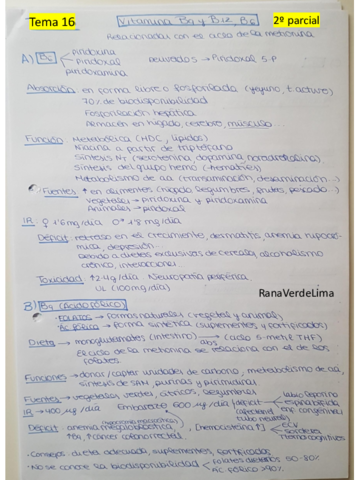 Tema 16
Vitamina B9 y B12, B6
2º parcial
Relacionadas con el ciclo de la metionina
A) B6
Piridoxina
Piridoxal
piridoxamina
Derivados → Piridoxal 5-P
Absorción en forma libre o fosforilada (yeyuno, t activo)
70% de biodisponibilidad
Fosforilación hepática
Almacén en hígado, cerebro, músculo...
Función Metabólica (HDC, lípidos)
Niacina a partir de triptófano
Síntesis Nt (serotonina, dopamina, noradrenalina)
Síntesis del grupo hemo (hematíes)
Metabolismo de aa (transaminación, desaminación...)
Fuentes ↑ en alimentos (hígado, legumbres, frutas, pescado...)
Vegetales → piridoxina y piridoxamina
Animales → piridoxal
IR: ♀ 1'6 mg/día ♂ 1'8 mg/día
Déficit: retraso en el crecimiento, dermatitis, anemia hipocrómica, depresión...
Debido a dietas exclusivas de cereales, alcoholismo
crónico, interacciones
Toxicidad ↑2-4g/día Neuropatía periférica
UL (100mg/día)
RanaVerdeLima
B) B9 (Ácido fólico)
FOLATOS → formas naturales (vegetal y animal)
Ác fólico → forma sintética (suplementos y fortificados)
Dieta → monoglutamatos (intestino) → abs (ciclo 5-metil THF)
El ciclo de la metionina se relaciona con el de los
folatos.
Funciones → donar/captar unidades de carbono, metabolismo de aa,
síntesis de SAM, purinas y pirimidinas
Fuentes → vegetales verdes, cítricos, legumbres
IR → 400 µg/día Embarazo 600 µg/día
labio leporino
espina bífida
Déficit: anemia megaloblástica
↑B9, ↑cáncer (colonorrectal)
Homocisteína ↑
ECV
sordera
· Consejos: dieta adecuada, suplementos, fortificados
· No se conoce la biodisponibilidad
folatos dietéticos 50-80%
Ac fólico >90%